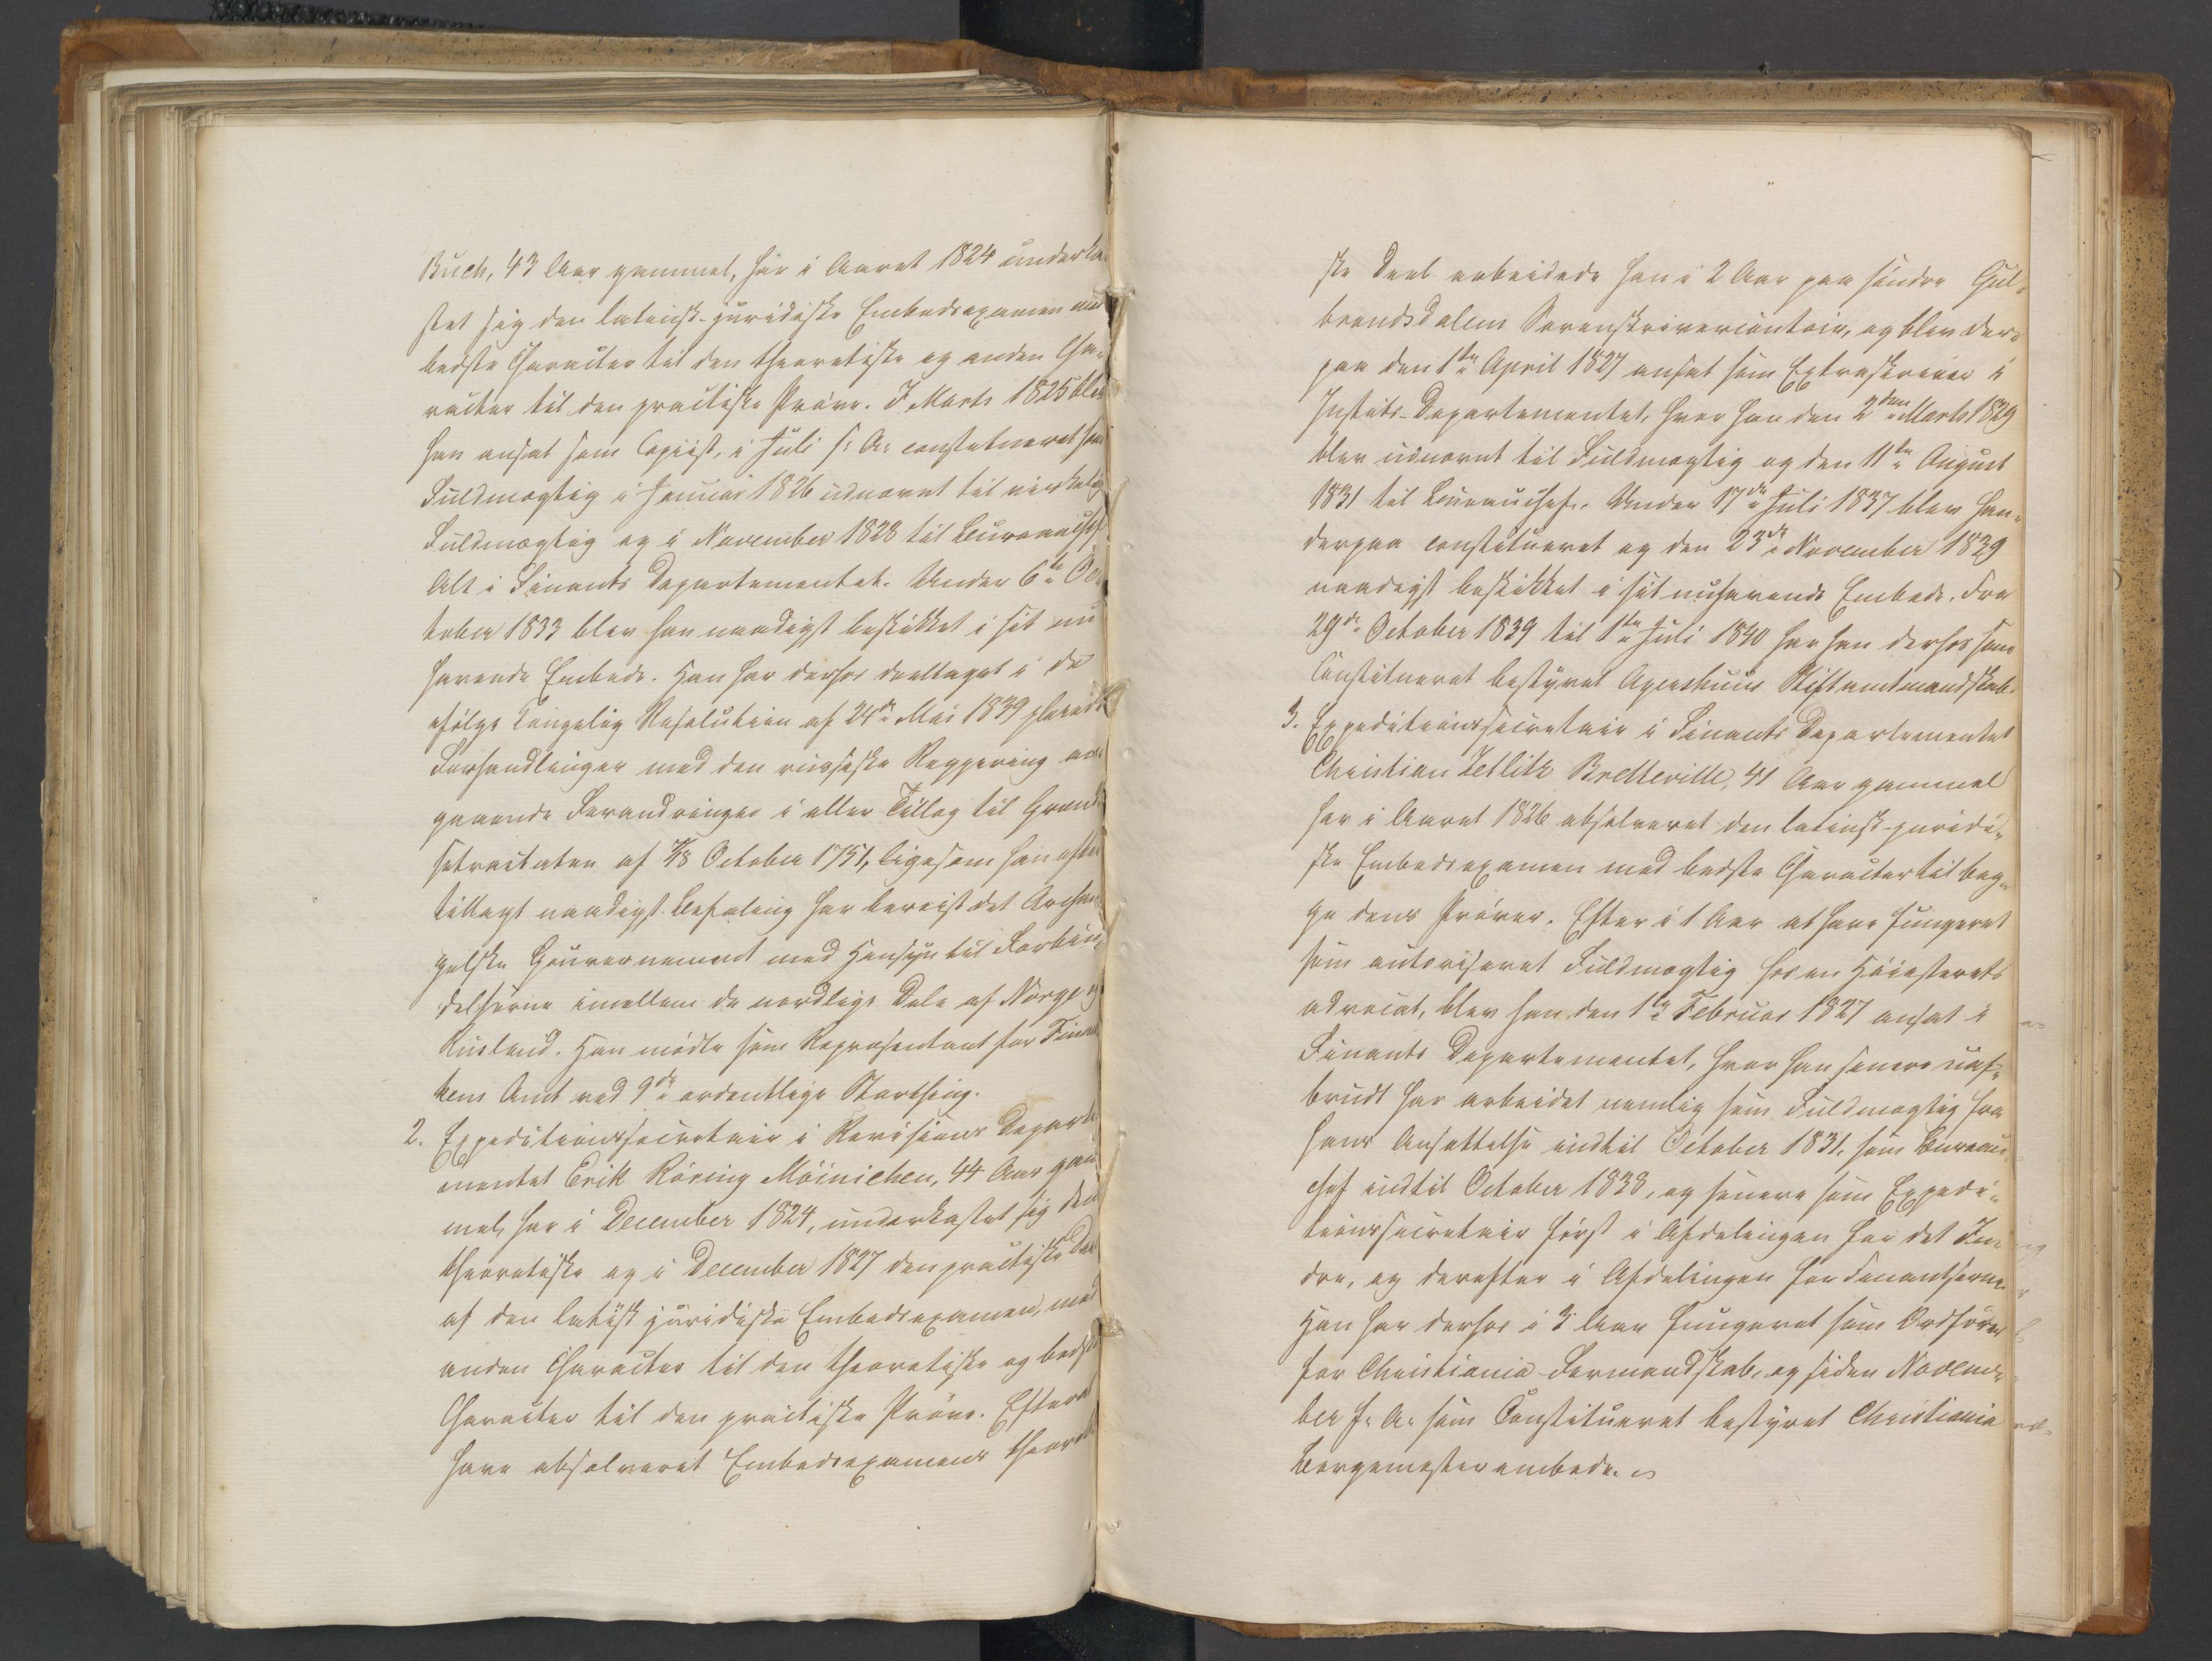 Buch, 43 Aar gammel, har i Aaret 1824 underka-
stet sig den latinsk-juridiske Embedsexamen med
bedste Character til den theoretiske og anden Cha-
racter til den practiske Prøve. I Marts 1825 blev
han ansat som Copiist, i Juli s. A. constitueret som
Fuldmægtig i Januar 1826 udnævnt til virkelig
Fuldmægtig og i November 1828 til Bureauchef
Alt i Finants Departementet. Under 6te Oc-
tober 1833 blev han naadigst beskikket i sit nu
havende Embede. Han har derhos deeltaget i de
ifølge Kongelig Resolution af 24de Mai 1839 pleiede
Forhandlinger med den russiske Regjering an-
gaaende Forandringer i eller Tillæg til Grænd-
setractaten af 2/18 October 1751, ligesom han efter
tillagt naadigst Befaling har bereist det Archan-
gelske Gouvernement med Hensyn til Forbin-
delserne imellem de nordlige Dele af Norge og
Rusland. Han mødte som Repræsentant for Finm
kens Amt ved 9de ordentlige Storthing.
2. Expeditionssecretair i Revisions Departe
mentet Erik Röring Möinichen, 44 Aar gam
mel, har i December 1824, underkastet sig den
theoretiske og i December 1827 den practiske Deel
af den latinsk juridiske Embedsexamen, med
anden Character til den theoretiske og bedste
Character til den practiske Prøve. Efter at
have absolveret Embedsexamens theoreti
ske Deel arbeidede han i 2 Aar paa søndre Gul-
brandsdalens Sorenskrivercontoir, og blev der-
paa den 1te April 1827 ansat som Extraskriver i
Justits-Departementet, hvor han den 2den Marts 1829
blev udnævnt til Fuldmægtig og den 11te August
1831 til Bureauchef. Under 17de Juli 1837 blev han
derpaa constitueret og den 23de November 1839
naadigst beskikket i sit nuhavende Embede. Fra
29de October 1839 til 1te Juli 1840 har han derhos som
Constitueret bestyret Agershuus Stiftamtmandskab.
3. Expeditionssecretair i Finants Departementet
Christian Zetlitz Bretteville, 41 Aar gammel
har i Aaret 1826 absolveret den latinsk-juridi-
ske Embedsexamen med bedste Character til beg-
ge dens Prøver. Efter i 1 Aar at have fungeret
som autoriseret Fuldmægtig hos en Høiesterets
advocat, blev han den 1te Februar 1827 ansat i
Finants Departementet, hvor han senere uaf-
brudt har arbeidet nemlig som Fuldmægtig fra
hans Ansættelse indtil October 1831, som Bureau
chef indtil October 1838, og senere som Expedi-
tionssecretair først i Afdelingen for det In-
dre, og derefter i Afdelingen for Finantserne.
Han har derhos i 3 Aar fungeret som Ordfører
for Christiania Formandskab, og siden Novem-
ber f. A. som Constitueret bestyret Christiania
Borgemesterembede.